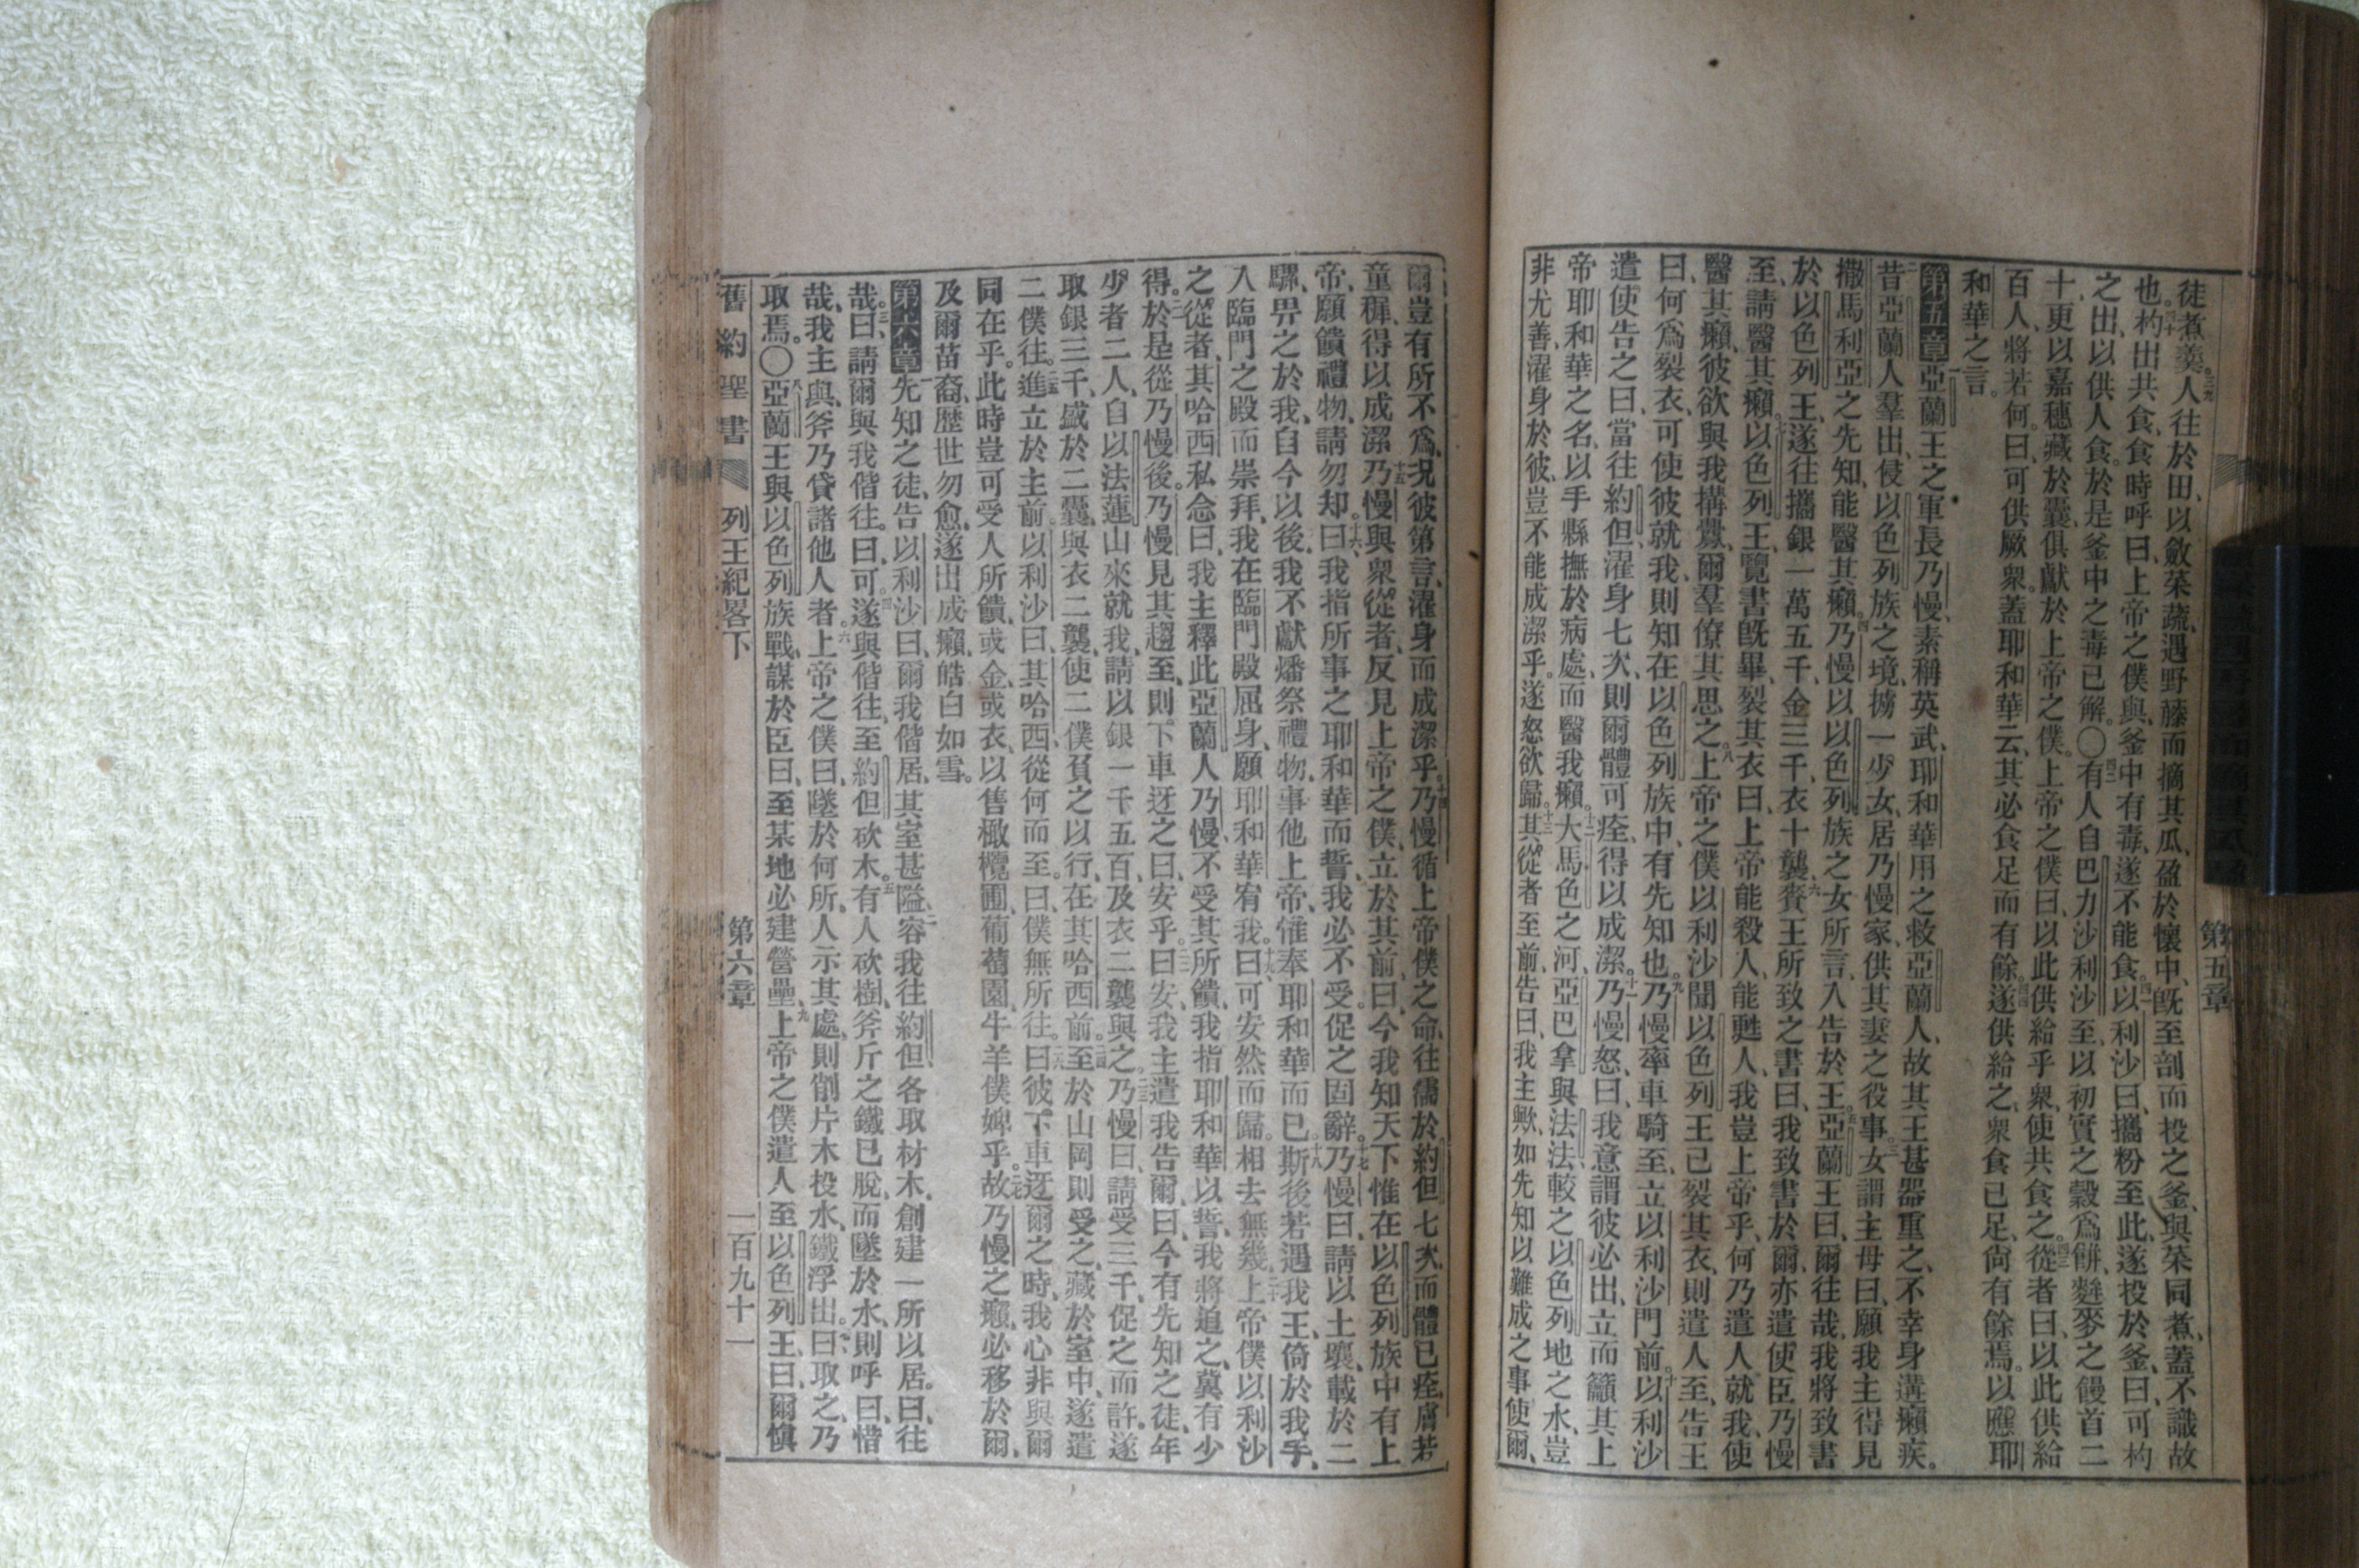 徒煮羹。三九人往於田、以斂菜蔬、遇野藤而摘其瓜、盈於懷中、旣至剖而投之釜、與菜同煮、蓋不識故
也。四十杓出共食、食時呼曰、上帝之僕與、釜中有毒、遂不能食。四一以利沙曰、攜粉至此、遂投於釜、曰、可杓
之出、以供人食。於是釜中之毒已解。〇四二有人自巴力沙利沙至、以初實之穀爲餅、麰麥之饅首二
十、更以嘉穗藏於囊、俱獻於上帝之僕。上帝之僕曰、以此供給乎衆、使共食之。四三從者曰、以此供給
百人、將若何。曰、可供厥衆。蓋耶和華云、其必食足而有餘。四四遂供給之、衆食已足、尙有餘焉。以應耶
和華之言。
第五章一亞蘭王之軍長乃慢、素稱英武、耶和華用之救亞蘭人、故其王甚器重之、不幸身遘癩疾。
二昔亞蘭人羣出、侵以色列族之境、擄一少女、居乃慢家、供其妻之役事。三女謂主母曰、願我主得見
撒馬利亞之先知、能醫其癩。四乃慢以以色列族之女所言、入告於王。五亞蘭王曰、爾往哉、我將致書
於以色列王、遂往攜銀一萬五千、金三千、衣十襲。六賚王所致之書曰、我致書於爾、亦遣使臣乃慢
至、請醫其癩。七以色列王、覽書旣畢、裂其衣曰、上帝能殺人、能甦人、我豈上帝乎、何乃遣人就我、使
醫其癩、彼欲與我構釁、爾羣僚其思之。八上帝之僕以利沙聞以色列王已裂其衣、則遣人至、告王
曰、何爲裂衣、可使彼就我、則知在以色列族中、有先知也。九乃慢率車騎至、立以利沙門前。十以利沙
遣使告之曰、當往約但、濯身七次、則爾體可痊、得以成潔。十一乃慢怒曰、我意謂彼必出、立而籲其上
帝耶和華之名、以手縣撫於病處、而醫我癩。十二大馬色之河、亞巴拿與法法、較之以色列地之水、豈
非尤善、濯身於彼、豈不能成潔乎。遂怒欲歸。十三其從者至前、告曰、我主歟、如先知以難成之事使爾、
爾豈有所不爲、況彼第言、濯身而成潔乎。十四乃慢循上帝僕之命、往濡於約但七次、而體已痊、膚若
童穉、得以成潔。十五乃慢與衆從者、反見上帝之僕、立於其前、曰、今我知天下惟在以色列族中有上
帝、願饋禮物、請勿却。十六曰、我指所事之耶和華而誓、我必不受。促之固辭。十七乃慢曰、請以土壤、載於二
騾、畀之於我、自今以後、我不獻燔祭禮物、事他上帝、惟奉耶和華而已。十八斯後若遇我王、倚於我手、
入臨門之殿而崇拜、我在臨門殿屈身、願耶和華宥我。十九曰、可安然而歸。相去無幾、二十上帝僕以利沙
之從者、其哈西私念曰、我主釋此亞蘭人乃慢、不受其所饋、我指耶和華以誓、我將追之、冀有少
得。二一於是從乃慢後。乃慢見其趨至、則下車迓之曰、安乎。二二曰安、我主遣我告爾、曰、今有先知之徒、年
少者二人、自以法蓮山來就我、請以銀一千五百、及衣二襲與之。二三乃慢曰、請受三千、促之而許、遂
取銀三千、盛於二囊、與衣二襲、使二僕負之以行、在其哈西前。二四至於山岡則受之、藏於室中、遂遣
二僕往。二五進立於主前。以利沙曰、其哈西、從何而至。曰、僕無所往。二六曰、彼下車迓爾之時、我心非與爾
同在乎。此時豈可受人所饋、或金、或衣、以售橄欖圃、葡萄園、牛羊僕婢乎。二七故乃慢之癩、必移於爾、
及爾苗裔、歷世勿愈、遂出成癩、皓白如雪。
第六章一先知之徒、告以利沙曰、爾我偕居、其室甚隘、二容我往約但、各取材木、創建一所以居。曰、往
哉。三曰、請爾與我偕往。曰、可。四遂與偕往、至約但砍木。五有人砍樹、斧斤之鐵已脫、而墜於水、則呼曰、惜
哉、我主與、斧乃貸諸他人者。六上帝之僕曰、墜於何所、人示其處、則削片木投水、鐵浮出。七曰、取之、乃
取焉。〇八亞蘭王與以色列族戰、謀於臣曰、至某地必建營壘、九上帝之僕遣人至以色列王、曰、爾愼
舊約聖書 列王紀畧下 第六章 一百九十一
第五章